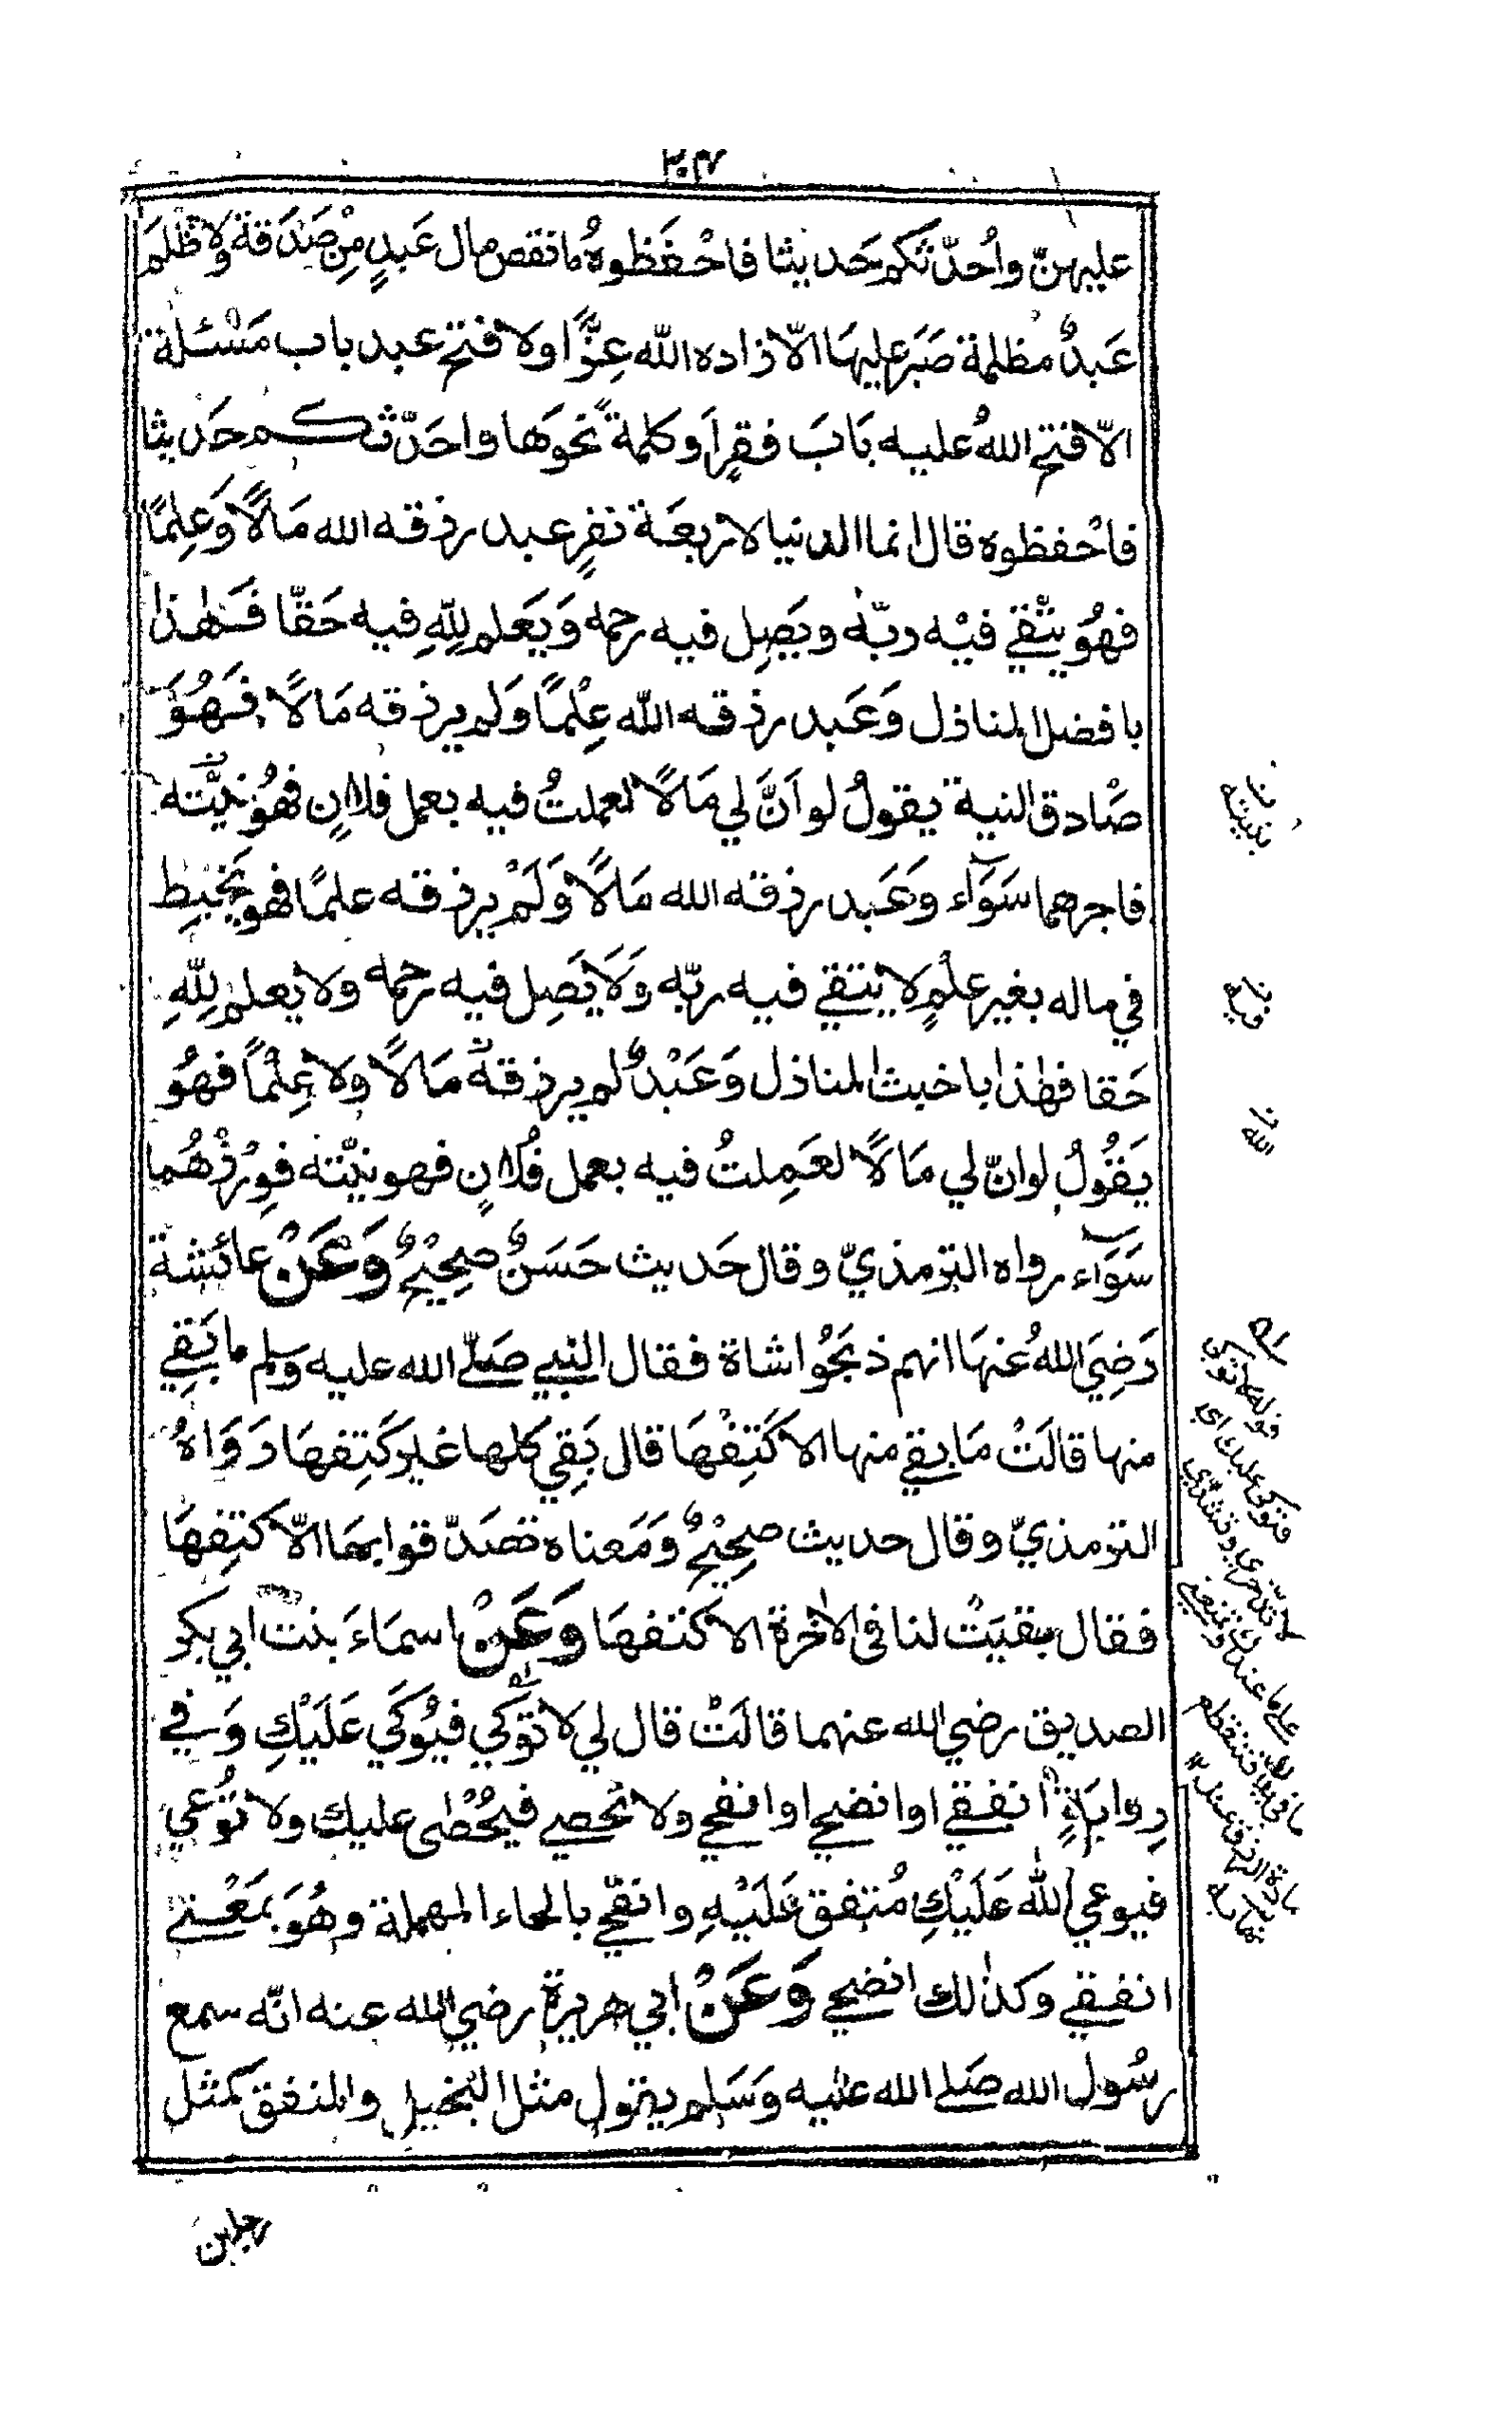 ٢٠٧
عليهنّ واُحدّثكم حَديثا فاحْفَظوهُ ما نقص مال عَبدٍ مِنْ صَدَقة ولا ظُلمَ
عَبدٌ مظلمة صَبَر عليهَا الّا زاده الله عِزًّا ولا فتح عبد باب مَسْئلة
الّا فتح اللهُ عليه بَابَ فقرٍ اَو كلمةً نحوَها واحَدّثكم حَديثا
فاحْفظوه قال انما الدنيا لاربعَة نفرٍ عبد رزقه الله مَالًا وَعِلمًا
فهُو يتّقي فيْه ربّهٗ ويَصِل فيه رحمه وَيَعَلم لِلّهِ فيه حَقّا فَهٰذا
بافضل المنازل وَعَبد رزقه الله عِلْمًا وَلم يرزقه مَالًا فَهُوَ
صَادق النية يقولُ لو اَنَّ لي مَالًا لعملتُ فيه بعمل فلانٍ فهُو نيَّته
فاجرهما سَوَآء وَعَبد رزقه الله مَالًا وَلَمْ يرزقه علمًا فهو يَخبِط
في ماله بغير علْمٍ لا يتقي فيه ربّه وَلَا يَصِل فيه رحمه ولا يَعلم لِلّهِ
حَقا فهٰذا باخبث المنازل وَعَبْدٌ لم يرزقهُ مَالًا ولا عِلْمًا فهُو
يَقُولُ لو انّ لي مَالًا لعَمِلتُ فيه بعمل فُلانٍ فهو نيّته فوِزْرُهُما
سَوَآء رواه الترمذيّ وقال حَديث حَسَنٌ صحِيْحٌ وَعَنْ عائشة
رَضِيَ اللهُ عنهَا انهم ذبَحُوا شاة فقال النبي صَلّے الله عليه وسلم ما بَقِي
منها قالَتْ مَا بقي منها الا كَتِفْهَا قال بَقِي كلها غير كَتِفهَا رَوَاهُ
الترمذيّ وقال حديث صحِيْحٌ وَمَعناه تصَدّقوا بهَا الّا كتِفهَا
فقال بقيَتْ لنا في الاٰخرة الا كتفهَا وَعَنْ اسمَاءَ بنت ابي بكر
الصديق رضي الله عنهما قالَتْ قال لي لا تُوْكي فيُوكَي عَلَيْكِ وَفي
رِوَايَةٍ انفقي او انضحي او انفحي ولا تُحصي فيُحْصٰى عليك ولا تُوعي
فيوعي اللهُ عَلَيْكِ مُتفق عَلَيْهِ وانفحي بالحاء المهملة وهُوَ بمَعْنے
انفقي وكذٰلك انضحي وَعَنْ ابي هريرة رضي الله عنه انّه سمع
رسُول الله صَلے الله عليه وَسَلم يقول مثل البَخيل والمنفق كمثل
رجلين